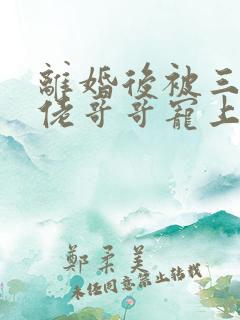 離婚後被三
佬哥哥寵上
鄭柔美
未任同意禁止轉載